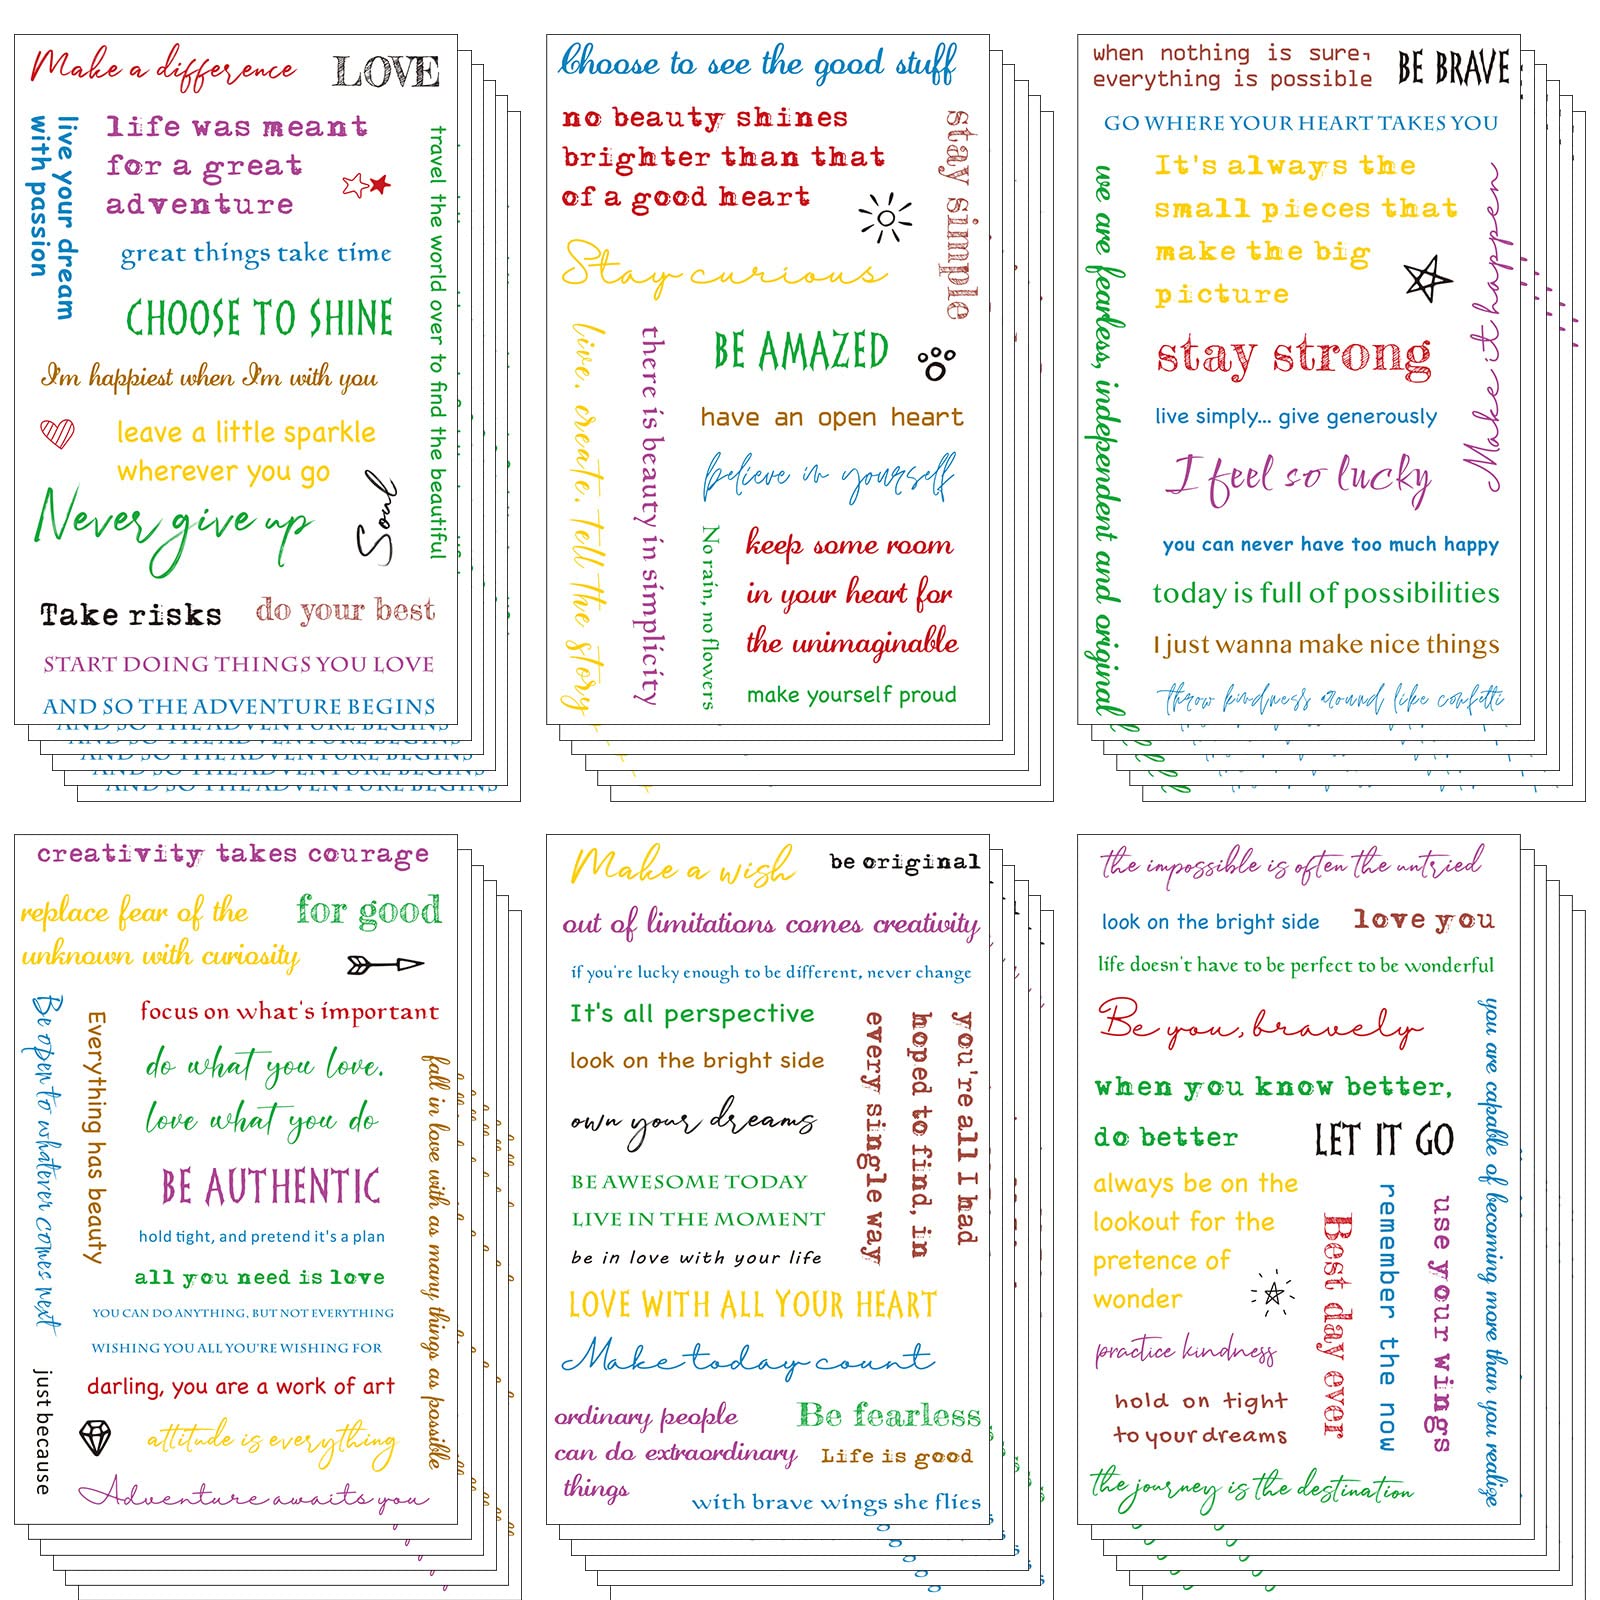 Make a difference
LOVE
live your dream
with passion
life was meant
for a great
adventure
travel the world over to find the beautiful
great things take time
CHOOSE TO SHINE
I'm happiest when I'm with you
leave a little sparkle
wherever you go
Never give up
Soul
Take risks
do your best
START DOING THINGS YOU LOVE
AND SO THE ADVENTURE BEGINS
AND SO THE ADVENTURE BEGINS
AND SO THE ADVENTURE BEGINS
AND SO THE ADVENTURE BEGINS
AND SO THE ADVENTURE BEGINS
AND SO THE ADVENTURE BEGINS
Choose to see the good stuff
no beauty shines
brighter than that
of a good heart
stay simple
Stay curious
live. create. tell the story
there is beauty in simplicity
BE AMAZED
have an open heart
believe in yourself
No rain, no flowers
keep some room
in your heart for
the unimaginable
make yourself proud
when nothing is sure,
everything is possible
BE BRAVE
GO WHERE YOUR HEART TAKES YOU
we are fearless, independent and original
It's always the
small pieces that
make the big
picture
Make it happen
stay strong
live simply... give generously
I feel so lucky
you can never have too much happy
today is full of possibilities
I just wanna make nice things
throw kindness around like confetti
creativity takes courage
replace fear of the
unknown with curiosity
for good
Be open to whatever comes next
Everything has beauty
focus on what's important
do what you love.
love what you do
fall in love with as many things as possible
BE AUTHENTIC
hold tight, and pretend it's a plan
all you need is love
YOU CAN DO ANYTHING, BUT NOT EVERYTHING
WISHING YOU ALL YOU'RE WISHING FOR
just because
darling, you are a work of art
attitude is everything
Adventure awaits you
Make a wish
be original
out of limitations comes creativity
if you're lucky enough to be different, never change
It's all perspective
look on the bright side
own your dreams
you're all I had
hoped to find, in
every single way
BE AWESOME TODAY
LIVE IN THE MOMENT
be in love with your life
LOVE WITH ALL YOUR HEART
Make today count
ordinary people
can do extraordinary
things
Be fearless
Life is good
with brave wings she flies
the impossible is often the untried
look on the bright side
love you
life doesn't have to be perfect to be wonderful
Be you, bravely
you are capable of becoming more than you realize
when you know better,
do better
LET IT GO
always be on the
lookout for the
pretence of
wonder
Best day ever
remember the now
use your wings
practice kindness
hold on tight
to your dreams
the journey is the destination